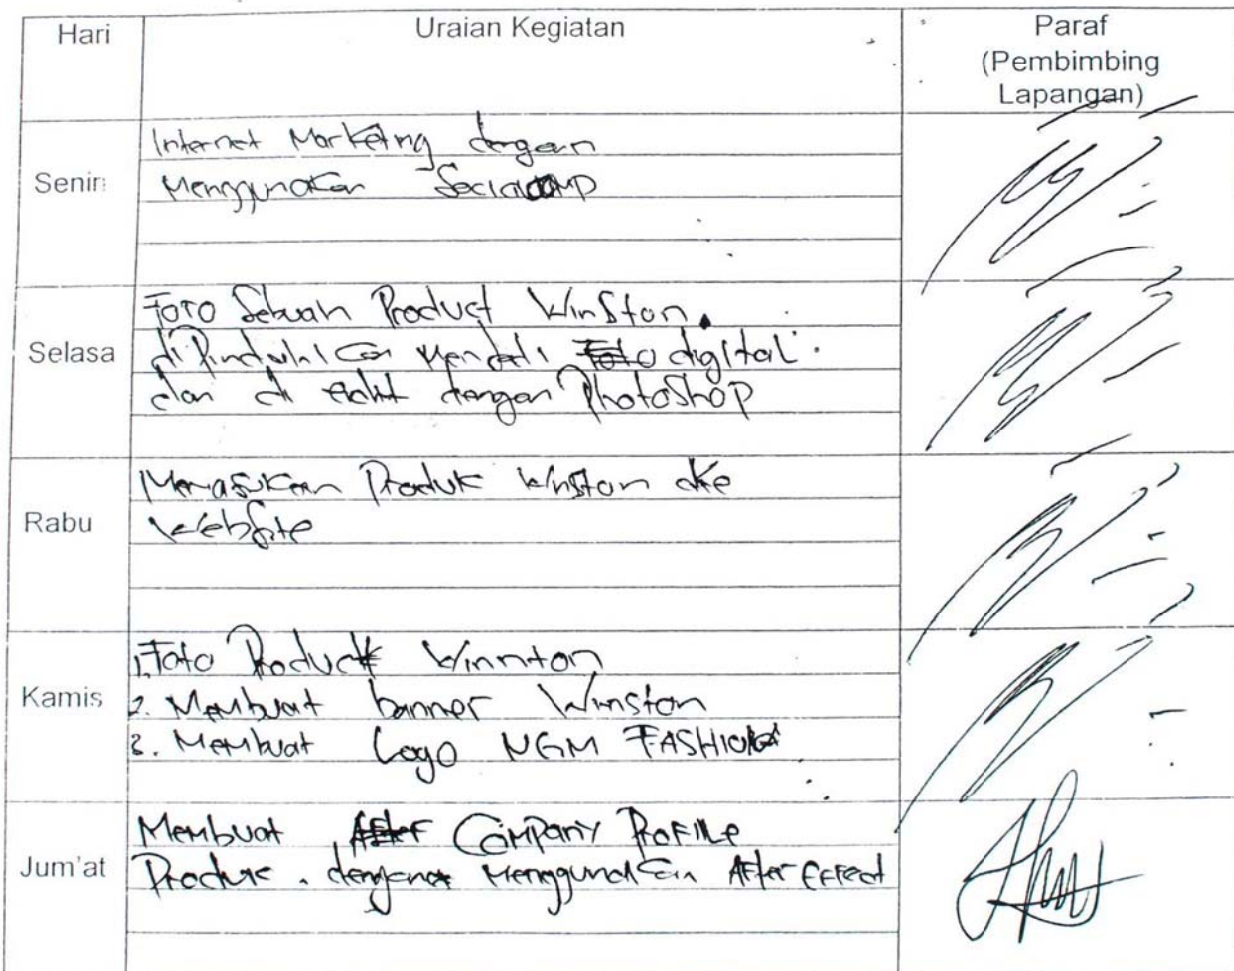 Hari
Uraian Kegiatan
Paraf
(Pembimbing
Lapangan)
Senin
Internet Marketing dengan
Menggunakan
Selasa
Foto Sebuah Product Winston.
di Pindahkan Menjadi digital.
dan di edit dengan PhotoShop
Rabu
Memasukan Produk Winston ke
Website
Kamis
1. Foto Product Winnton
2. Membuat banner Winston
3. Membuat Logo NGM FASHION
Jum'at
Membuat Company Profile
Produk. dengan Menggunakan After Effect